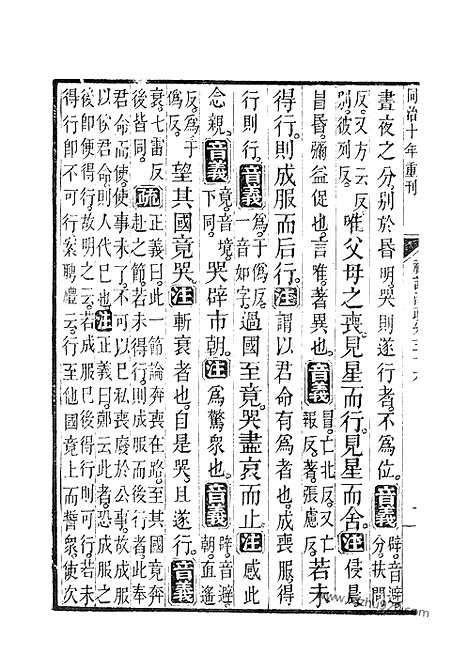 同治十年重刊
晝夜之分別於昬明哭則遂行者不爲位。音義辟音避分扶問
反又方云反別彼列反唯父母之喪見星而行見星而舍。注侵晨
冒昬彌益促也言唯著異也。音義冒亡北反又亡報反著張慮反若未
得行則成服而后行。注謂以君命有爲者也成喪服得
行則行。音義爲于僞反一音如字過國至竟哭盡哀而止。注感此
念親。音義竟音境下同哭辟市朝。注爲驚衆也。音義辟音避朝直遙
反爲于僞反望其國竟哭。注斬衰者也自是哭且遂行。音義
衰七雷反後皆同疏正義曰此一節論奔喪在路至其國竟奔赴之節若未得行則成服而後行者此奉
君命而使使事未了不可以已私喪廢於公事故成服以俟君命則人代已也注正義曰鄭云此者恐成服之
後即便得行故明之云若成服已後得行即可行若未得行即不可行案聘禮云行至他國竟上而誓衆使次